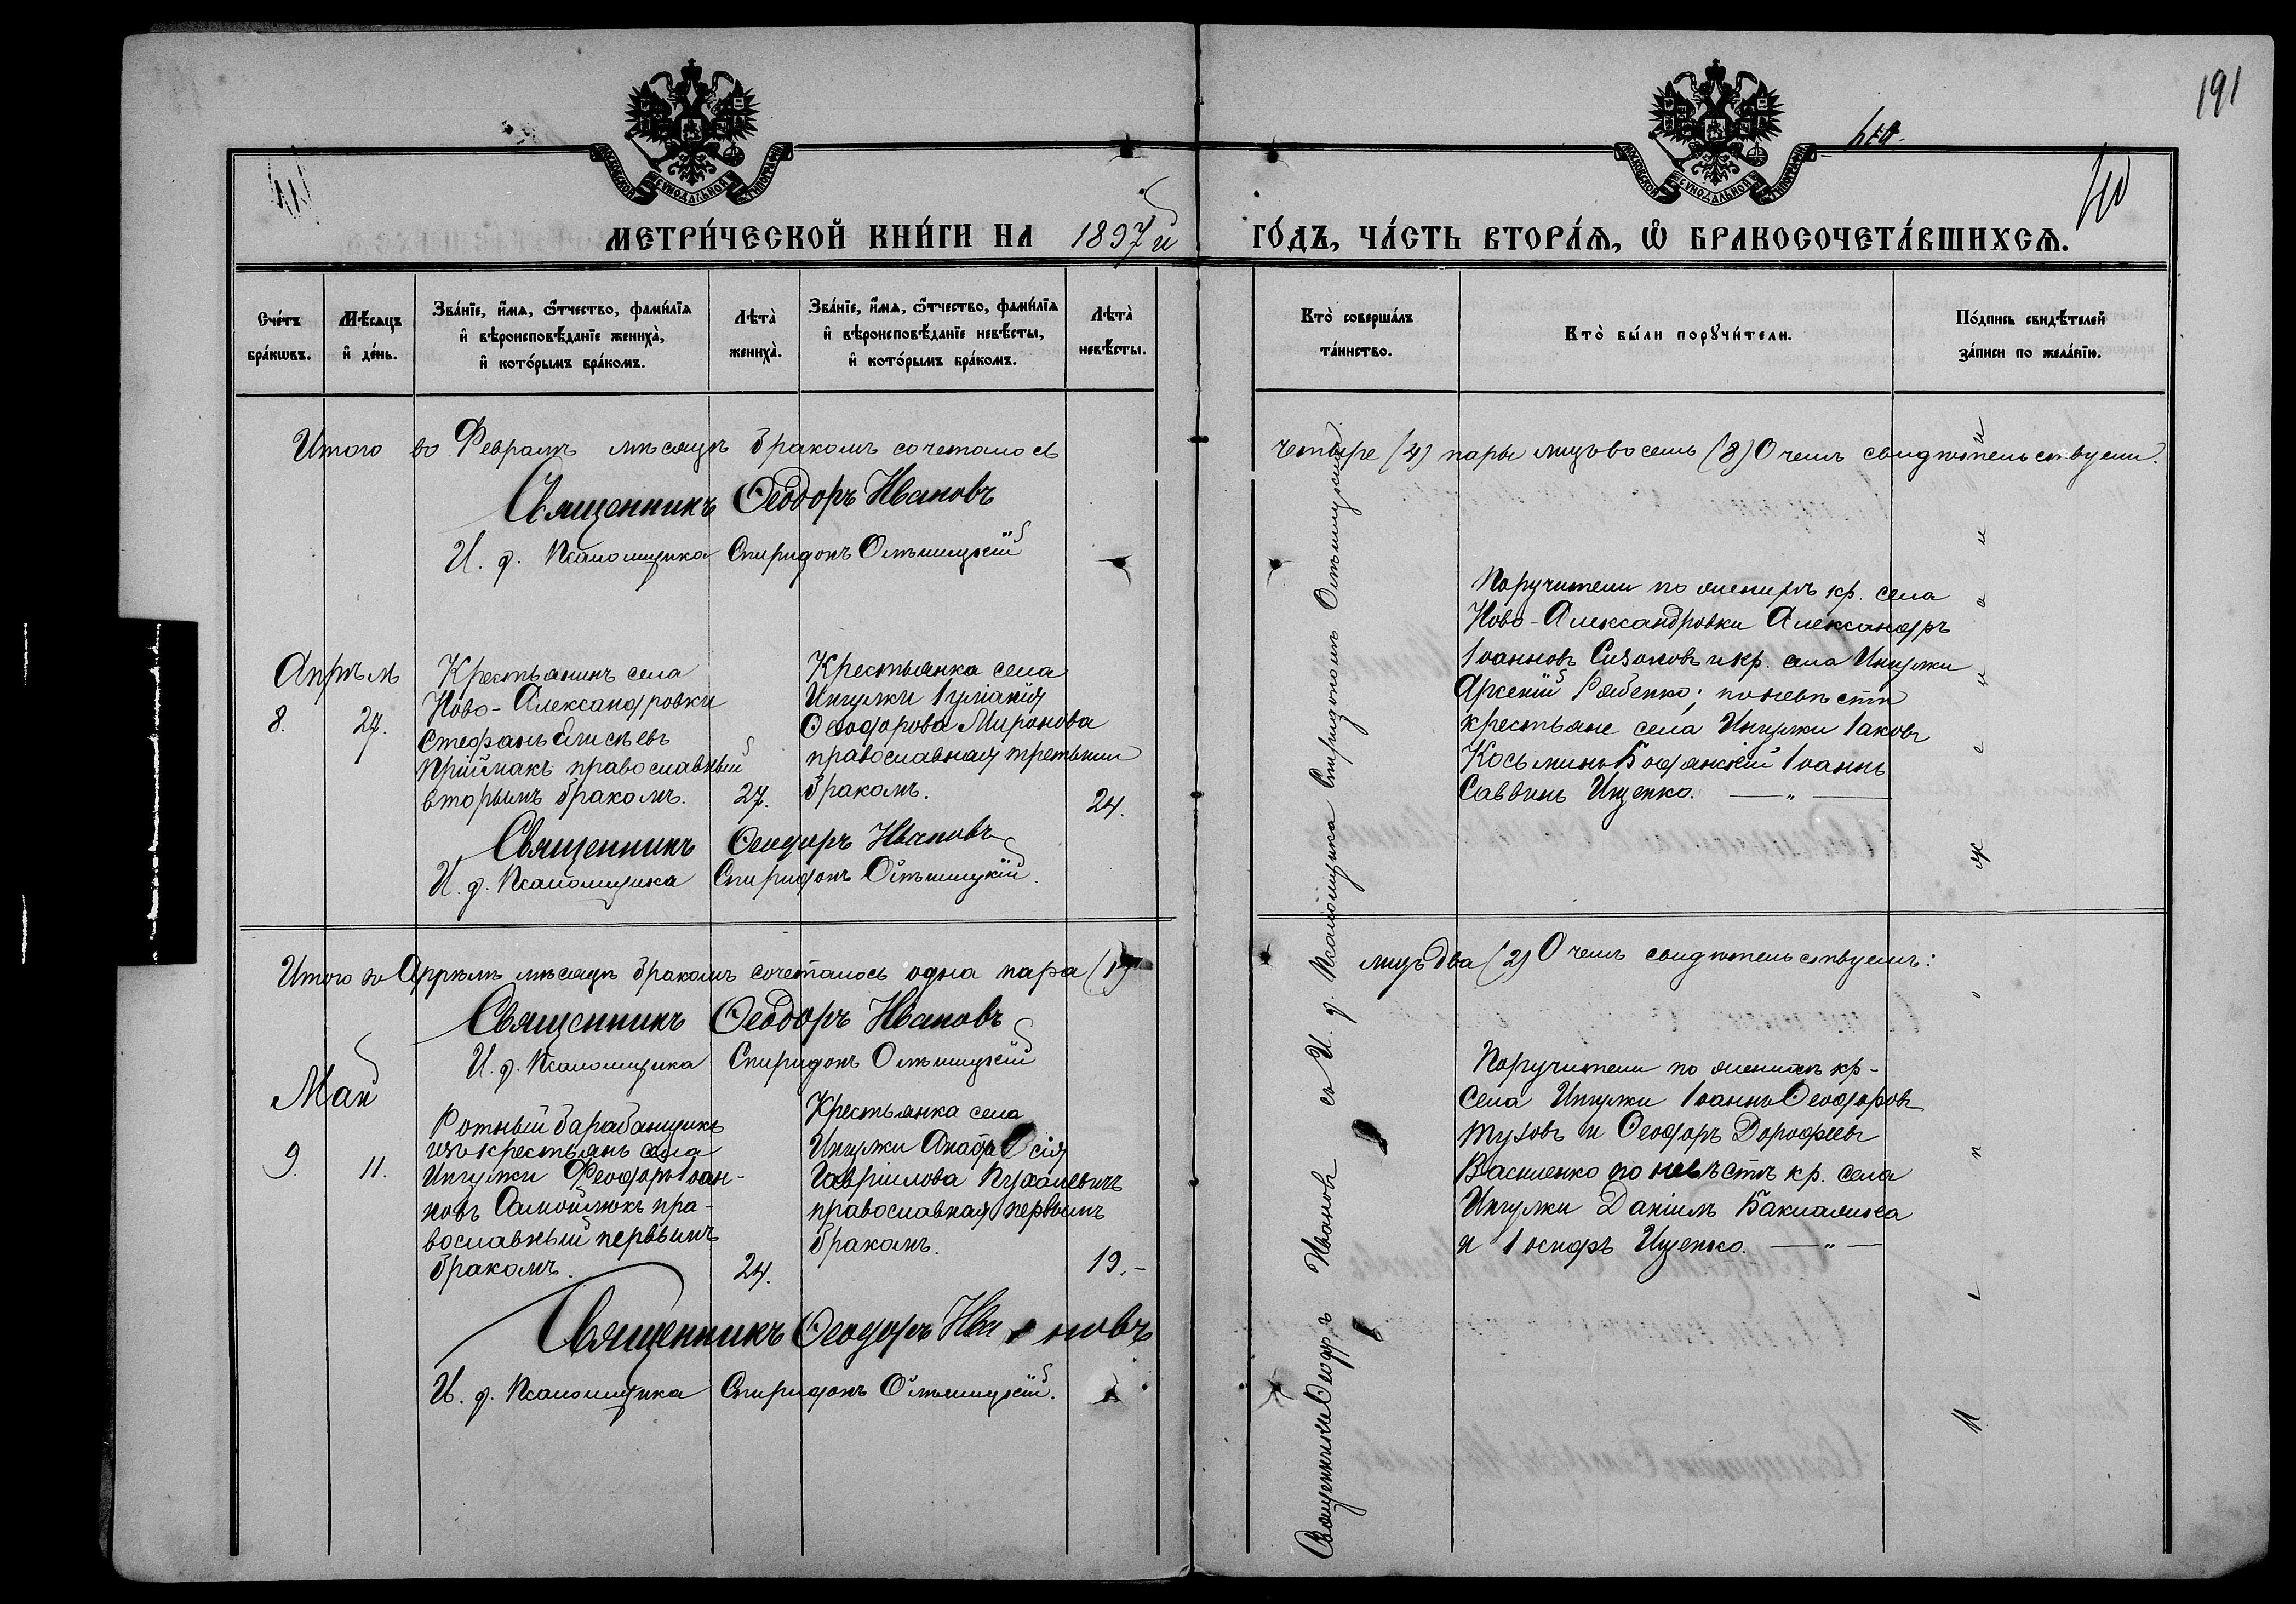 191
МОСКОВСКОЙ СѴНОДАЛЬНОЙ ТИПОГРАФІИ
МОСКОВСКОЙ СѴНОДАЛЬНОЙ ТИПОГРАФІИ
МЕТРИ́ЧЕСКОЙ КНИ́ГИ НА 1897й ГО́ДЪ, ЧА́СТЬ ВТОРА́Я, Ѡ҆ БРАКОСОЧЕТА́ВШИХСЯ.
Сче́тъ бра́кѡвъ.
Мѣ́сяцъ и҆ де́нь.
Зва́нїе, и҆́мя, ѻ҆́тчество, фами́лїя и҆ вѣроисповѣ́данїе жениха̀, и҆ кото́рымъ бра́комъ.
Лѣта̀ жениха̀.
Зва́нїе, и҆́мя, ѻ҆́тчество, фами́лїя и҆ вѣроисповѣ́данїе невѣ́сты, и҆ кото́рымъ бра́комъ.
Лѣта̀ невѣ́сты.
Кто̀ соверша́лъ та́инство.
Кто̀ бы́ли порꙋчи́тели.
По́дпись свидѣ́телей за́писи по жела́нїю.
Итого во Февралѣ мѣсяцѣ бракомъ сочеталось четыре (4) пары лицъ восемь (8) О чемъ свидѣтельствуемъ.
Священникъ Ѳеодоръ Ивановъ
И. д. Псаломщика Спиридонъ Ольшицкій
Апрѣль
8.
27.
Крестьянинъ села
Ново-Александровки
Стефанъ Елисѣевъ
Пріймакъ православный
вторымъ бракомъ.
27.
Крестьянка села
Ингулки Іуліанія
Ѳеодорова Миронова
православная третьимъ
бракомъ.
24.
Поручители по женихѣ кр. села
Ново-Александровки Александръ
Іоанновъ Сизоновъ и кр. села Ингулки
Арсеній Рябенко; по невѣстѣ
крестьяне села Ингулки Іаковъ
Косьминъ Іоаннъ
Саввинъ Ищенко. — " —
Священникъ Ѳеодоръ Ивановъ
И. д. Псаломщика Спиридонъ Ольшицкій.
Итого въ Апрѣлѣ мѣсяцѣ бракомъ сочеталось одна пара (1) лицъ два (2) О чемъ свидѣтельствуемъ:
Священникъ Ѳеодоръ Ивановъ
И. д. Псаломщика Спиридонъ Ольшицкій
Май
9.
11.
Ротный барабанщикъ
изъ крестьянъ села
Ингулки Феодоръ Іоан-
новъ Самойлюкъ пра-
вославный первымъ
бракомъ.
24.
Крестьянка села
Ингулки
Гавріилова Пухалевичъ
православная первымъ
бракомъ.
19.-
Поручители по женихѣ кр-
села Ингулки Іоаннъ Ѳеодоровъ
и Ѳеодоръ Дорофеевъ
Василенко по невѣстѣ кр. села
Ингулки Даніилъ
и Іосифъ Ищенко. — " —
Священникъ Ѳеодоръ Ивановъ
И. д. Псаломщика Спиридонъ Ольшицкій.
Священникъ Ѳеодоръ Ивановъ съ И. д. Псаломщика Спиридономъ Ольшицкимъ.